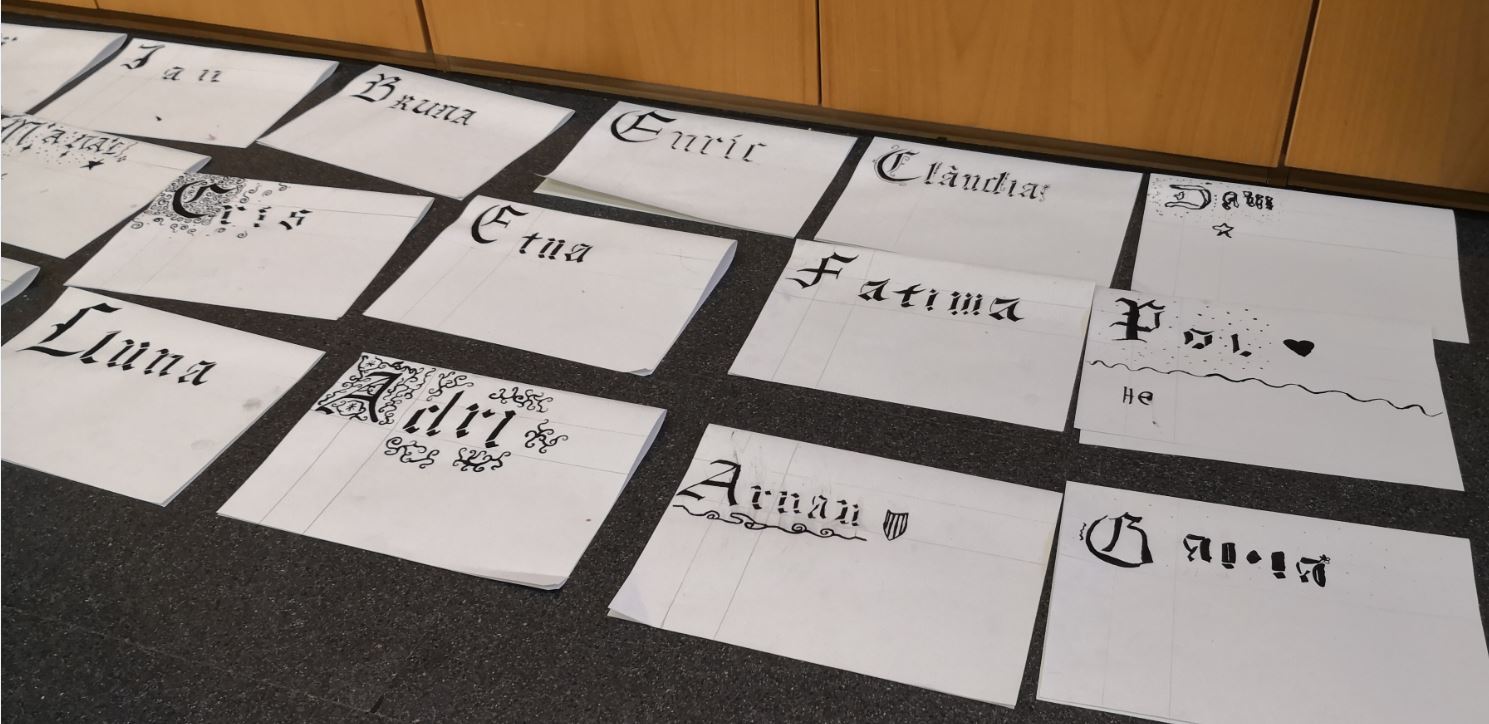 Jan
Bruna
Enric
Clàudia
Cris
Etna
Fatima
Pol
HE
Lluna
Adri
Arnau